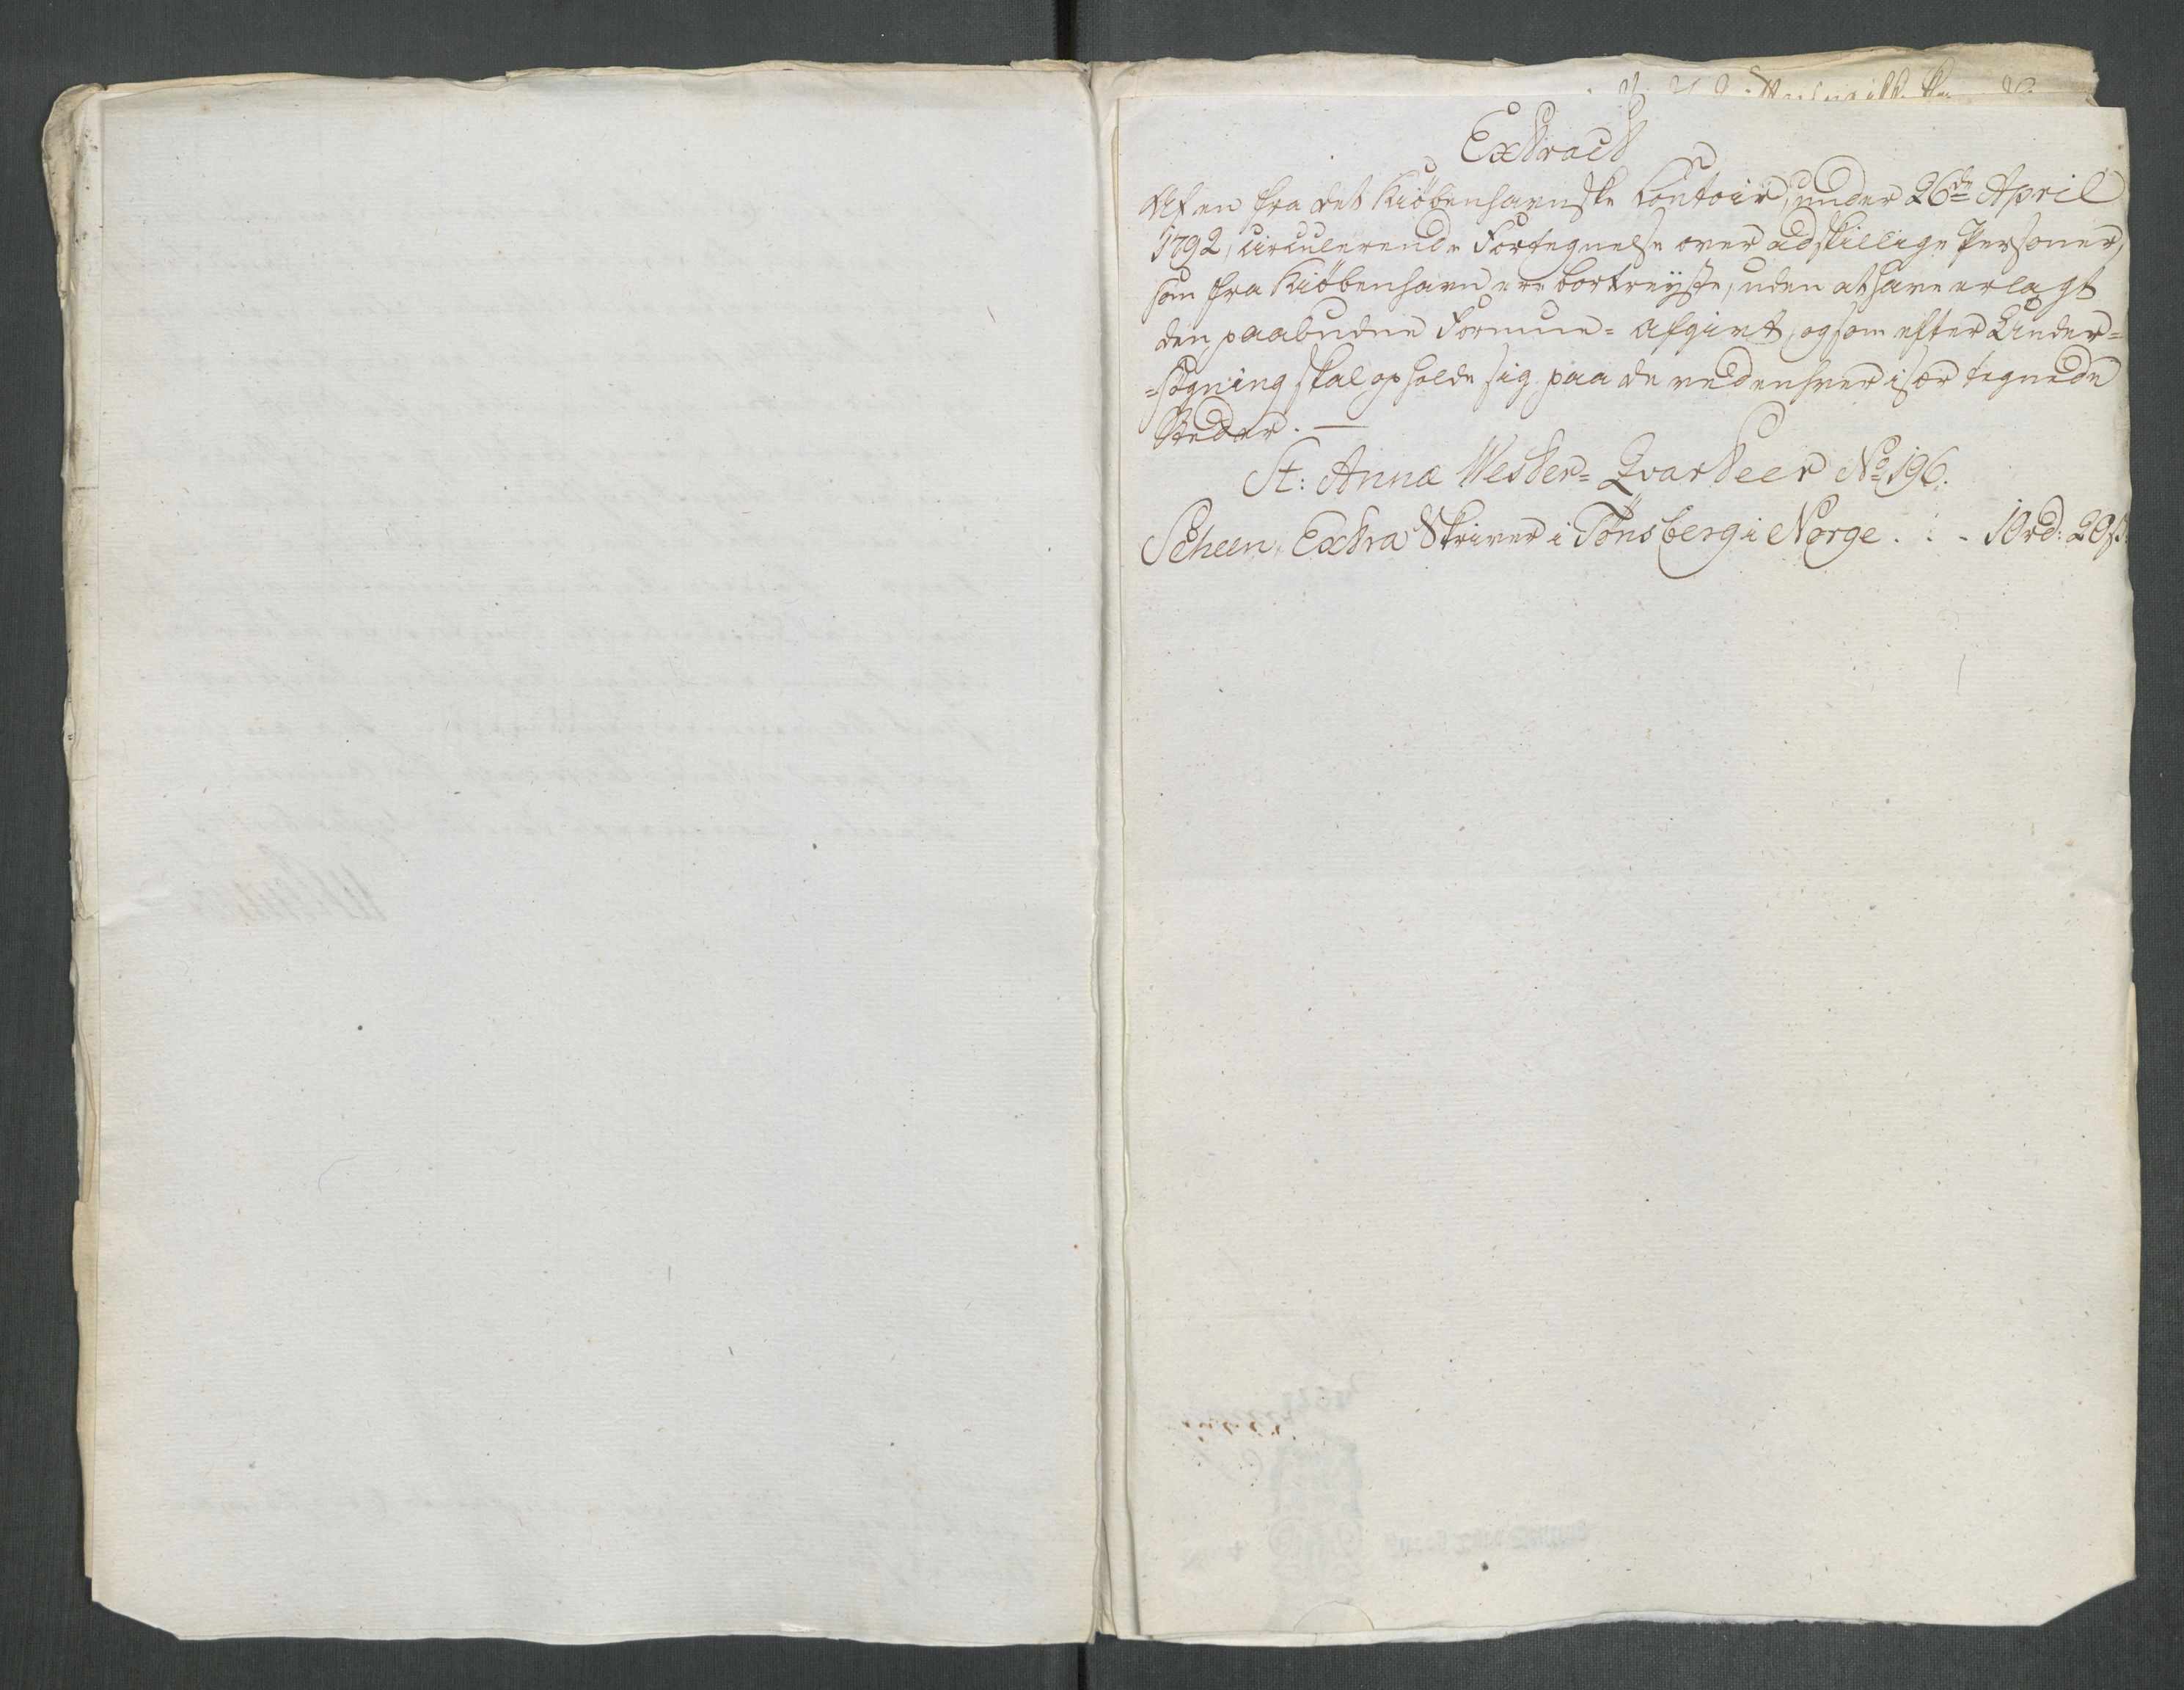 Extract
Af en fra det Kiøbenhavnske Contoir, under 26de April
1792, circulerende Fortegnelse over adskillige Personer,
som fra Kiøbenhavn ere bortreyste, uden at have erlagt
den paabudne Formue- Afgivt, og som efter Under-
-søgning skal opholde sig paa de ved enhver især tegnede
Stæder. —
St: Annæ Wester- Qvarteer No 196.
Scheen, Extra Skriver i Tønsberg i Norge . . - 10rd: 20s: